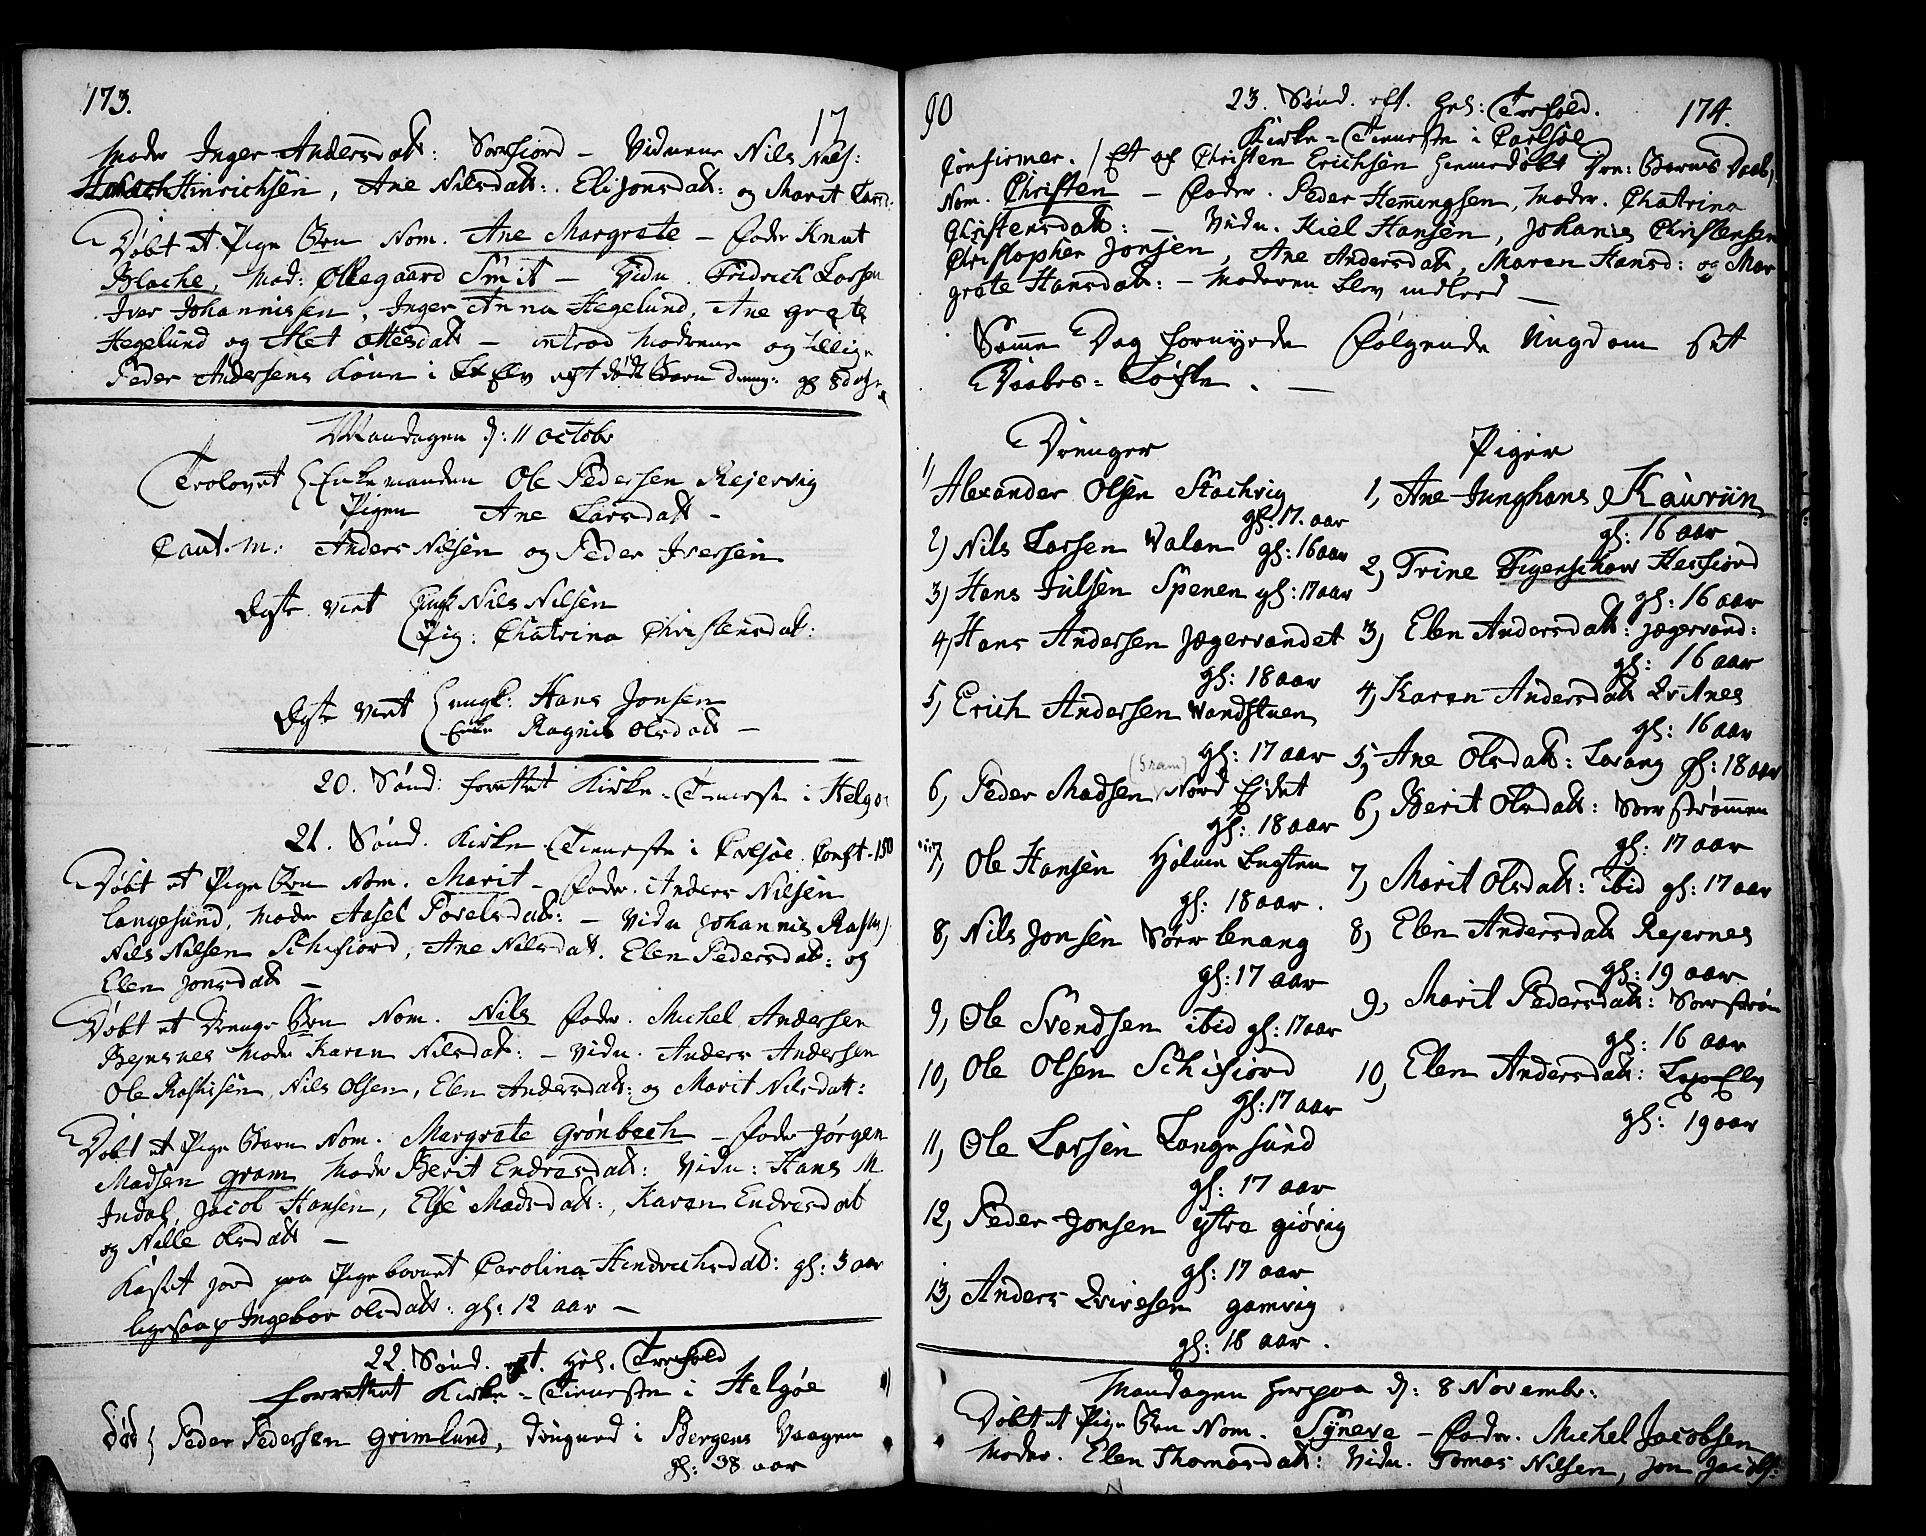 173.
17
Moder Inger Andersdatt: Sørfiord – Vidnerne Nils Niels:
Hinrichsen, Ane Nilsdatt:. Eli Jonsdatt: og Marit Larsd:
Døbt et Pige Brn Nom. Ane Margrete – Fader Knut
Blache, Mod: Øllegaard Smit – Vidn. Fridrich Larsen
Iver Johannissen, Inger Anna Hegelund, Ane Grete
Hegelund og Alet Ottesdatt – introd Modrene og tillige
Peder Andersens Kone i Elv Barn
Mandagen d: 11 octobr
Trolovet Enkemanden Ole Pedersen Rejervig
Pigen Ane Larsdatt –
Caut. M: Anders Nilsen og Peder Iversen
Egte viet Ungk Nils Nilsen
Pig: Chatrina Christensdat:
Egte viet ungk: Hans Jonsen
Enke Ragnil Olsdatt –
20. Sønd: forettet Kirke-Tieneste i Helgø
21. Sønd. Kirke Tieneste i Carlsøe. Conft. 150
Døbt et Pige Brn Nom. Marit – Fader. Anders Nilsen
Langesund, Moder Aasel Povelsdatt: – Vidn Johannis Rasm
Nils Nilsen Schifiord, Ane Nilsdatt. Elen Pedersdatt: og
Elen Jonsdatt –
Døbt et Drenge Brn Nom. Nils Fader. Michel Andersen
Bejnsnes Moder Karen Nilsdatt: – Vidn. Anders Andersen
Ole Raskisen, Nils Olsen, Elen Andersdatt: og Marit Nilsdatt:
Døbt et Pige Barn Nom. Margrete Grønbech – Fader Jørgen
Madsen Gram Moder Berit Endresdatt: Vidn: Hans M.
Indal, Jacob Hansen, Else Madsdatt:, Karen Endresdat
og Nille Olsdatt –
Kastet jord paa Pigebarnet Carolina Hendrichsdat: gl: 3 aar
ligesaa p Ingebor Olsdatt: gl: 12 aar –
22. Sønd. eft. Hel. Trefold
forrettet Kirke-Tieneste i Helgøe
Død Peder Pedersen Grimlund, i Bergens Vaagen
gl: 38 aar
90
23. Sønd. eft. Hel: Trefold. 174.
Kirke-Tieneste i Carlsøe
Confirmer. / Et af Christen Erichsen hiemedøbt Dre: Barns Daab,
Nom. Christen – Fader. Peder Hemingsen, Moder. Chatrina
Christensdatt: – Vidn. Kiel Hansen, Johanis Christensen
Christopher Jonsen, Ane Andersdatt, Maren Hansd: og Mar
grete Hansdatt: – Moderen blev indled –
Samme Dag fornyede følgende Ungdom sit
Daabes-Løfte. –
Drenger Piger
1) Alexander Olsen Stachvig
gl: 17. aar
2) Nils Larsen Valan gl: 16 aar
3) Hans Julsen Spenen gl: 17 aar
4) Hans Andersen Jægervandet
gl: 18 aar
5, Erich Andersen Vandstuen
gl: 17 aar
(Gram)
6, Peder Madsen Nord Eidet
gl: 18 aar
7, Ole Hansen Holmen
gl: 18 aar.
8, Nils Jonsen Sørlenang
gl: 17 aar
9, Ole Svendsen ibid gl: 17 aar
10, Ole Olsen Schifiord
gl: 17 aar
11, Ole Larsen Langesund
gl: 17 aar
12, Peder Jonsen ystre giøvig
gl: 17 aar
13, Anders Qvivesen gamvig
gl: 18 aar.
1, Ane Junghans Kauriin
gl: 16 aar
2, Trine Figenschow Hessfiord
gl: 16 aar
3, Elen Andersdatt: Jægervand:
gl: 16 aar
4, Karen Andersdatt Qvitnes
gl: 16 aar
5, Ane Olsdatt: Lavang gl: 18 aar
6, Berit Olsdatt: Sørstrømmen
gl: 17 aar
7, Marit Olsdatt: ibid gl: 17 aar
8, Elen Andersdatt Rejernes
gl: 19 aar
9, Marit Pedersdatt: Sørstrøm
gl: 16 aar
10, Elen Andersdatt: Lax Elv
gl: 19 aar
Mandagen herpaa d: 8 Novembr:
Døbt et Pige Brn Nom. Syneve – Fader. Michel Jacobsen
Moder. Elen Thomasdatt: Vidn. Tomas Nilsen, Jon Jacobs: